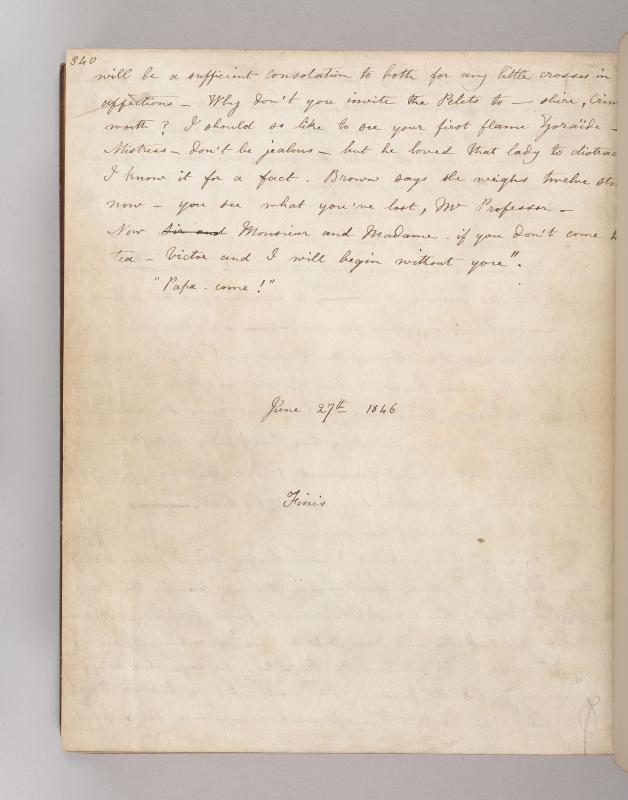 340
will be a sufficient consolation to both for any little crosses in
affections — Why don't you invite the Pelets to — shire, Crim
worth? I should so like to see your first flame Zoraïde —
Mistress — don't be jealous — but he loved that lady to distrac
I know it for a fact. Brown says she weighs twelve sto
now — you see what you've lost, Mr Professor —
Now Sir and Monsieur and Madame — if you don't come
tea — Victor and I will begin without you".
"Papa — come!"
June 27th 1846
Finis